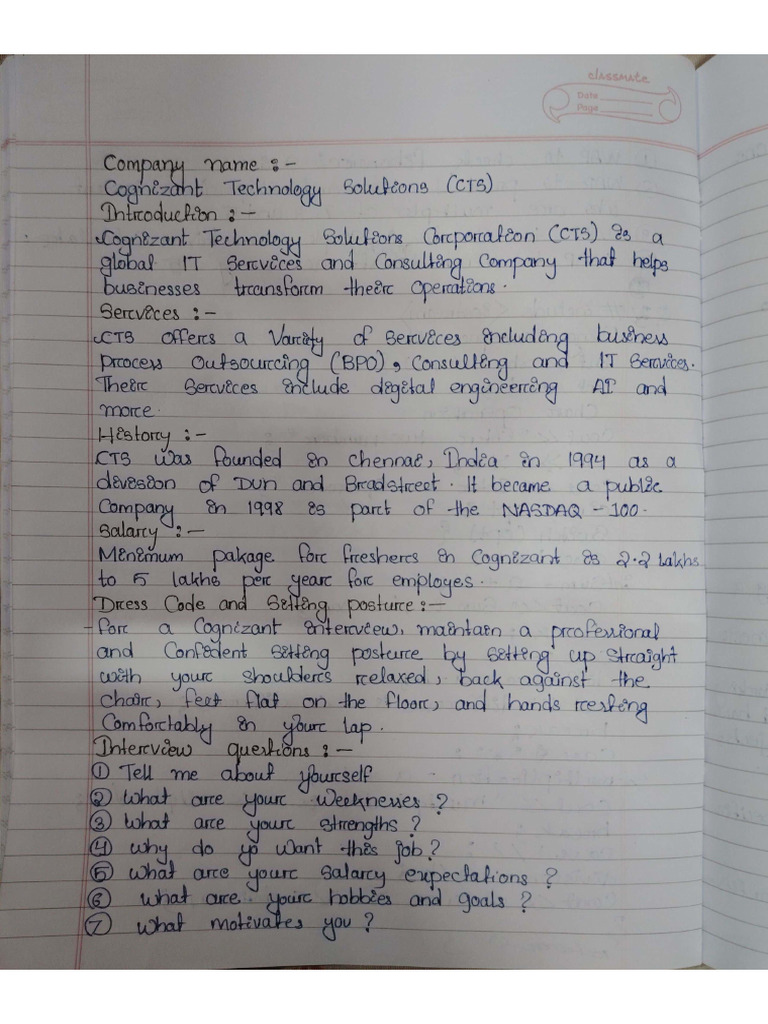 classmate
Date
Page
Company name :-
Cognizant Technology Solutions (CTS)
Introduction :-
Cognizant Technology Solutions Corporation (CTS) is a
global IT Services and Consulting Company that helps
businesses transform their operations.
Services :-
CTS offers a Variety of Services including business
process Outsourcing (BPO), Consulting and IT Services.
Their Services include digital engineering AI and
more.
History :-
CTS was founded in Chennai, India in 1994 as a
division of Dun and Bradstreet. It became a public
Company in 1998 is part of the NASDAQ -100.
Salary :-
Minimum pakage for freshers in Cognizant is 2.2 Lakhs
to 5 lakhs per year for employes.
Dress Code and Sitting posture :-
- For a Cognizant interview, maintain a professional
and Confident Sitting posture by sitting up straight
with your shoulders relaxed, back against the
chair, feet flat on the floor, and hands resting
Comfortably in your lap.
Interview questions :-
① Tell me about yourself
② What are your weeknesses ?
③ What are your strengths ?
④ Why do yo want this job?
⑤ What are your salary expectations ?
⑥ what are your hobbies and goals ?
⑦ What motivates you ?